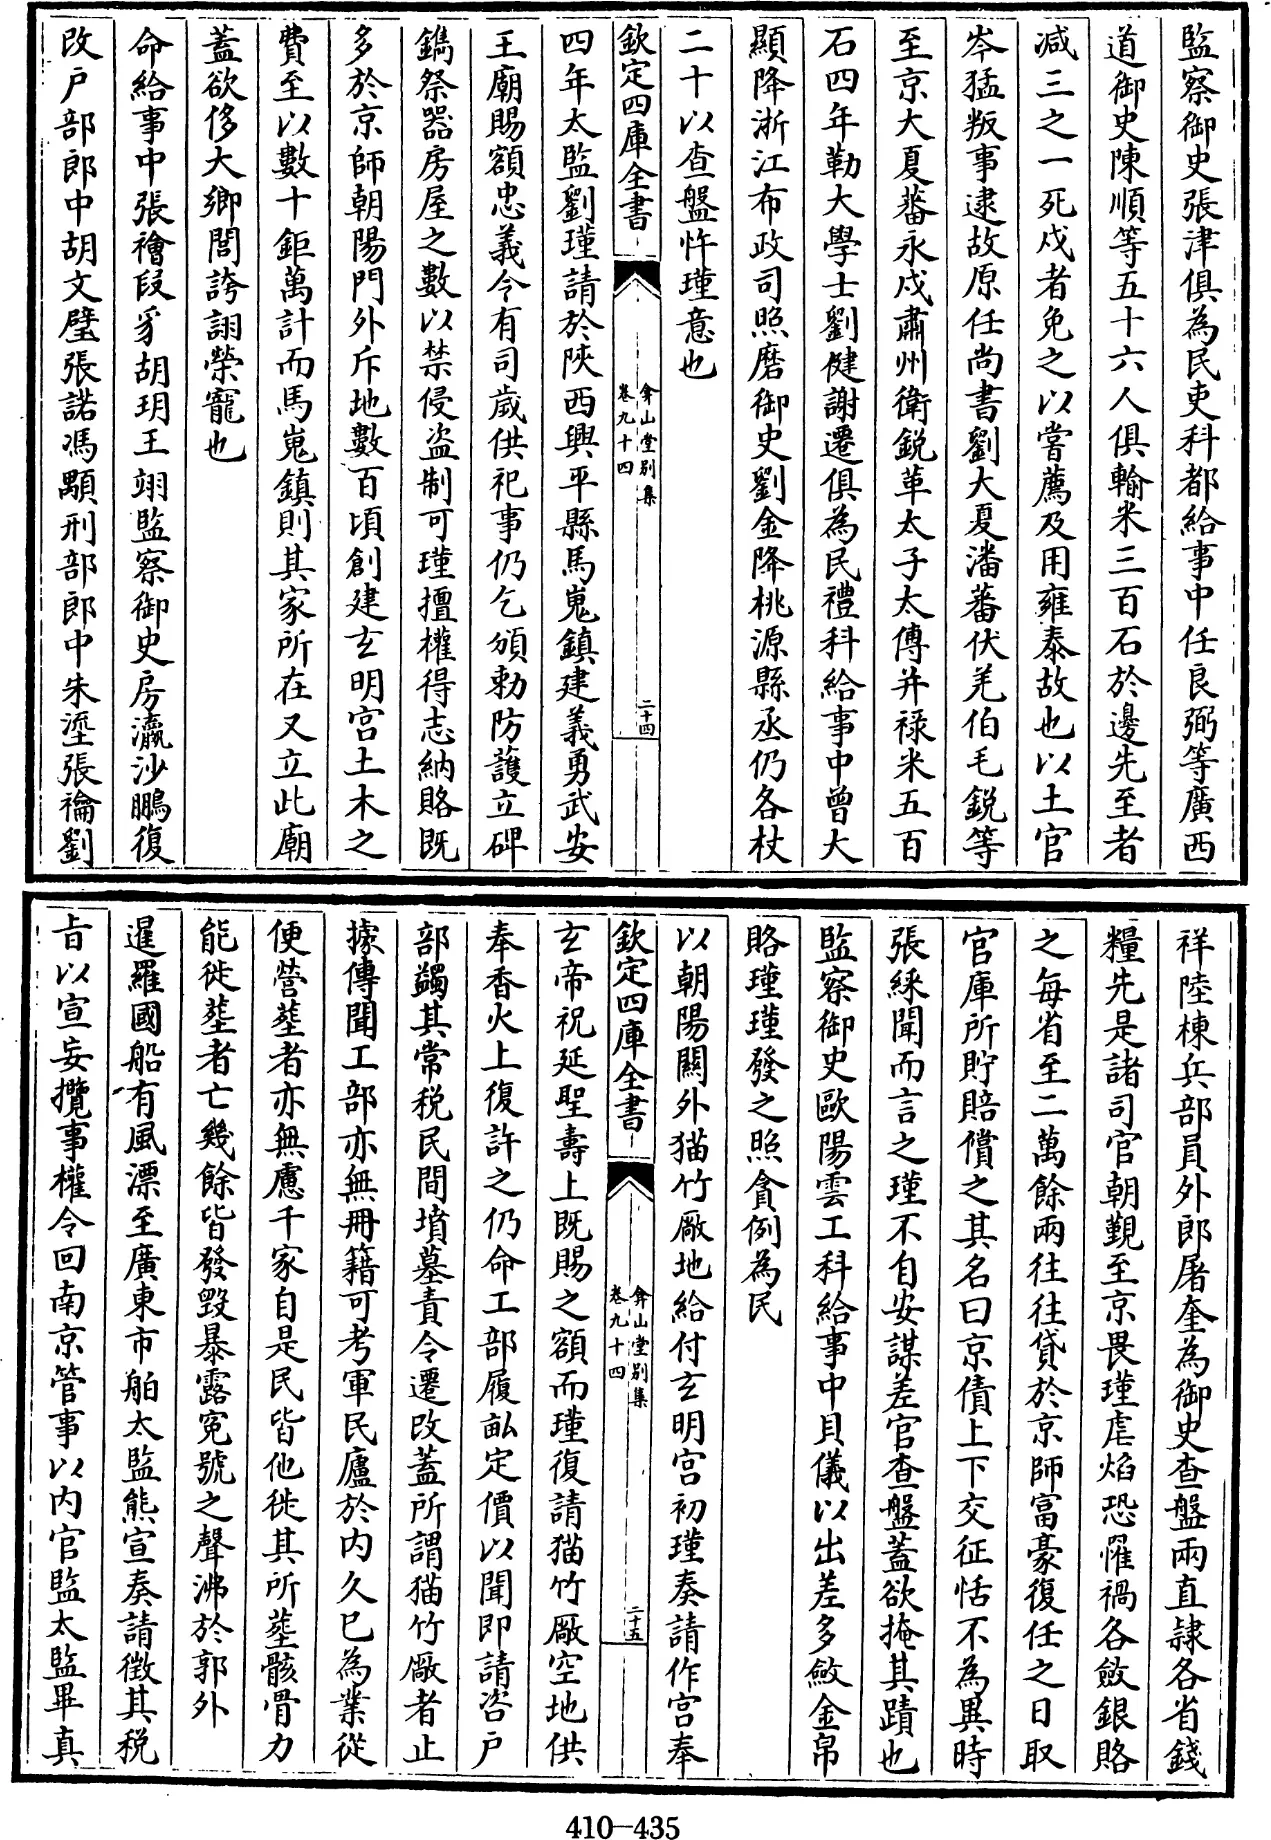 監察御史張津俱為民吏科都給事中任良弼等廣西
道御史陳順等五十六人俱輸米三百石於邊先至者
减三之一死戍者免之以嘗薦及用雍泰故也以土官
岑猛叛事逮故原任尚書劉大夏潘蕃伏羌伯毛鋭等
至京大夏蕃永戍肅州衛鋭革太子太傅并祿米五百
石四年勒大學士劉健謝遷俱為民禮科給事中曾大
顯降浙江布政司照磨御史劉金降桃源縣丞仍各杖
二十以查盤忤瑾意也
欽定四庫全書
弇山堂別集
卷九十四
二十四
四年太監劉瑾請於陜西興平縣馬嵬鎮建義勇武安
王廟賜額忠義令有司歲供祀事仍乞頒勅防護立碑
鐫祭器房屋之數以禁侵盗制可瑾擅權得志納賂既
多於京師朝陽門外斥地數百頃創建玄明宮土木之
費至以數十鉅萬計而馬嵬鎮則其家所在又立此廟
蓋欲侈大鄉閭誇詡榮寵也
命給事中張禬段豸胡玥王翊監察御史房瀛沙鵬復
改户部郎中胡文璧張諾馮顒刑部郎中朱瀅張禴劉
祥陸棟兵部員外郎屠奎為御史查盤兩直隸各省錢
糧先是諸司官朝覲至京畏瑾虐焰恐懼禍各斂銀賂
之每省至二萬餘兩往往貸於京師富豪復任之日取
官庫所貯賠償之其名曰京債上下交征恬不為異時
張綵聞而言之瑾不自安謀差官查盤蓋欲掩其蹟也
監察御史歐陽雲工科給事中貝儀以出差多斂金帛
賂瑾瑾發之照貪例為民
以朝陽關外猫竹厰地給付玄明宮初瑾奏請作宮奉
欽定四庫全書
弇山堂別集
卷九十四
二十五
玄帝祝延聖壽上既賜之額而瑾復請猫竹厰空地供
奉香火上復許之仍命工部履畝定價以聞即請咨户
部蠲其常税民間墳墓責令遷改蓋所謂猫竹厰者止
據傳聞工部亦無冊籍可考軍民廬於内久已為業從
便營塟者亦無慮千家自是民皆他徙其所塟骸骨力
能徙塟者亡幾餘皆發毁暴露寃號之聲沸於郭外
暹羅國船有風漂至廣東市舶太監熊宣奏請徵其税
㫖以宣妄攬事權令回南京管事以内官監太監畢真
410-435